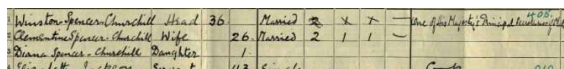 Winston Spencer-Churchill Head 36 Married 2 x x — One of His Majesty's Principal Secretaries of
Clementine Spencer-Churchill Wife 26 Married 2 1 1 —
Diana Spencer-Churchill Daughter 1